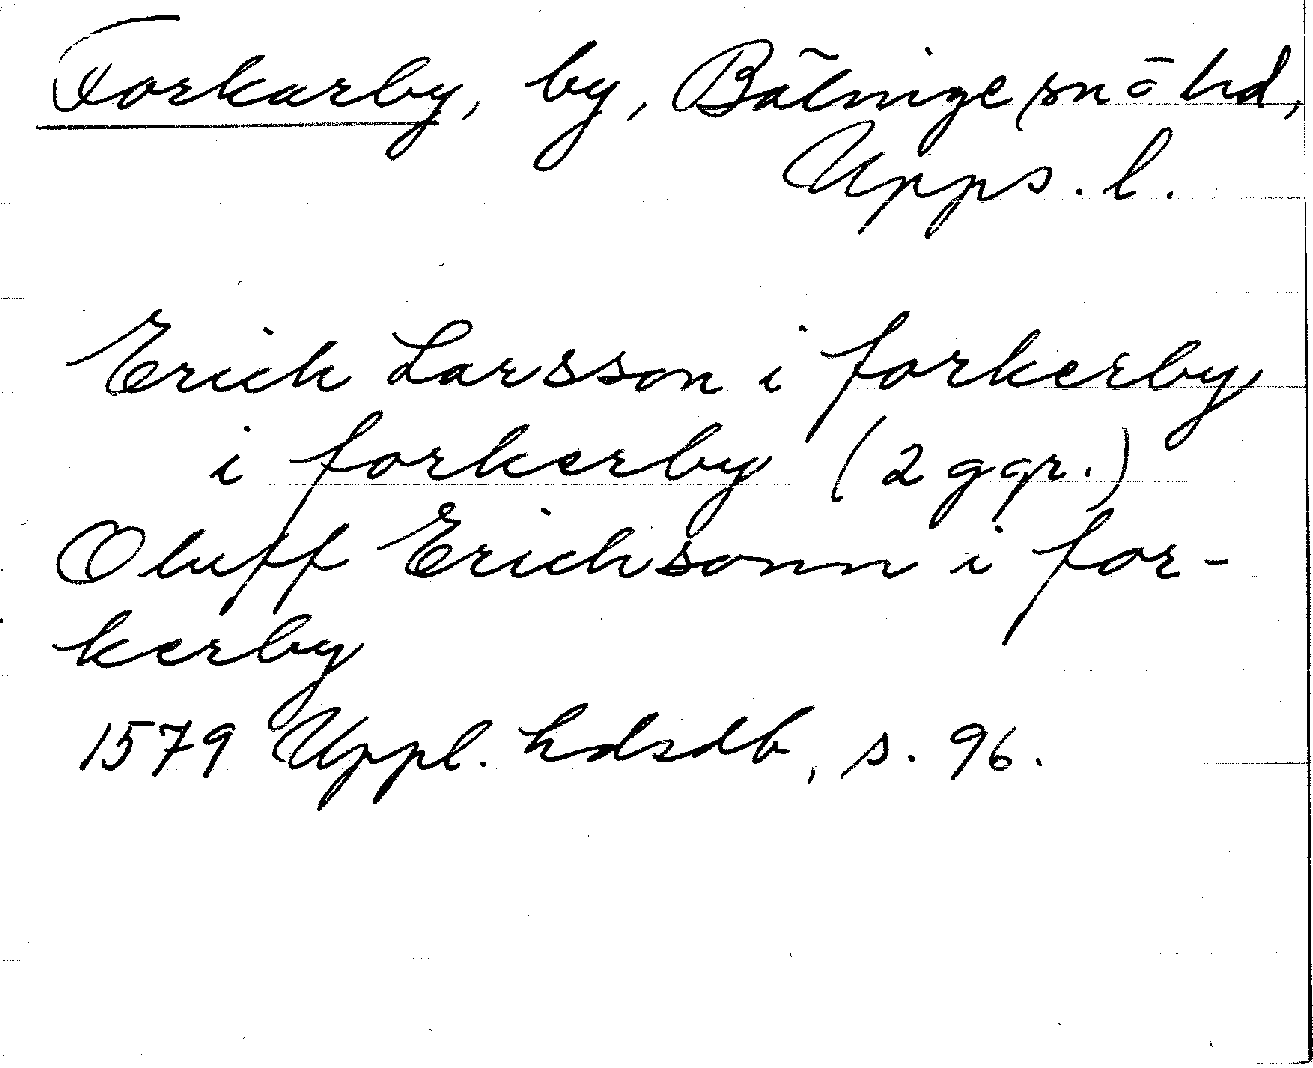 Forkarby, by, Bälinge sn o hd,
Upps. l.
Erich Larsson i forkerby
i forkerby (2 ggr.)
Oluff Erichsonn i for-
kerby
1579 Uppl. hdsdb, s. 96.